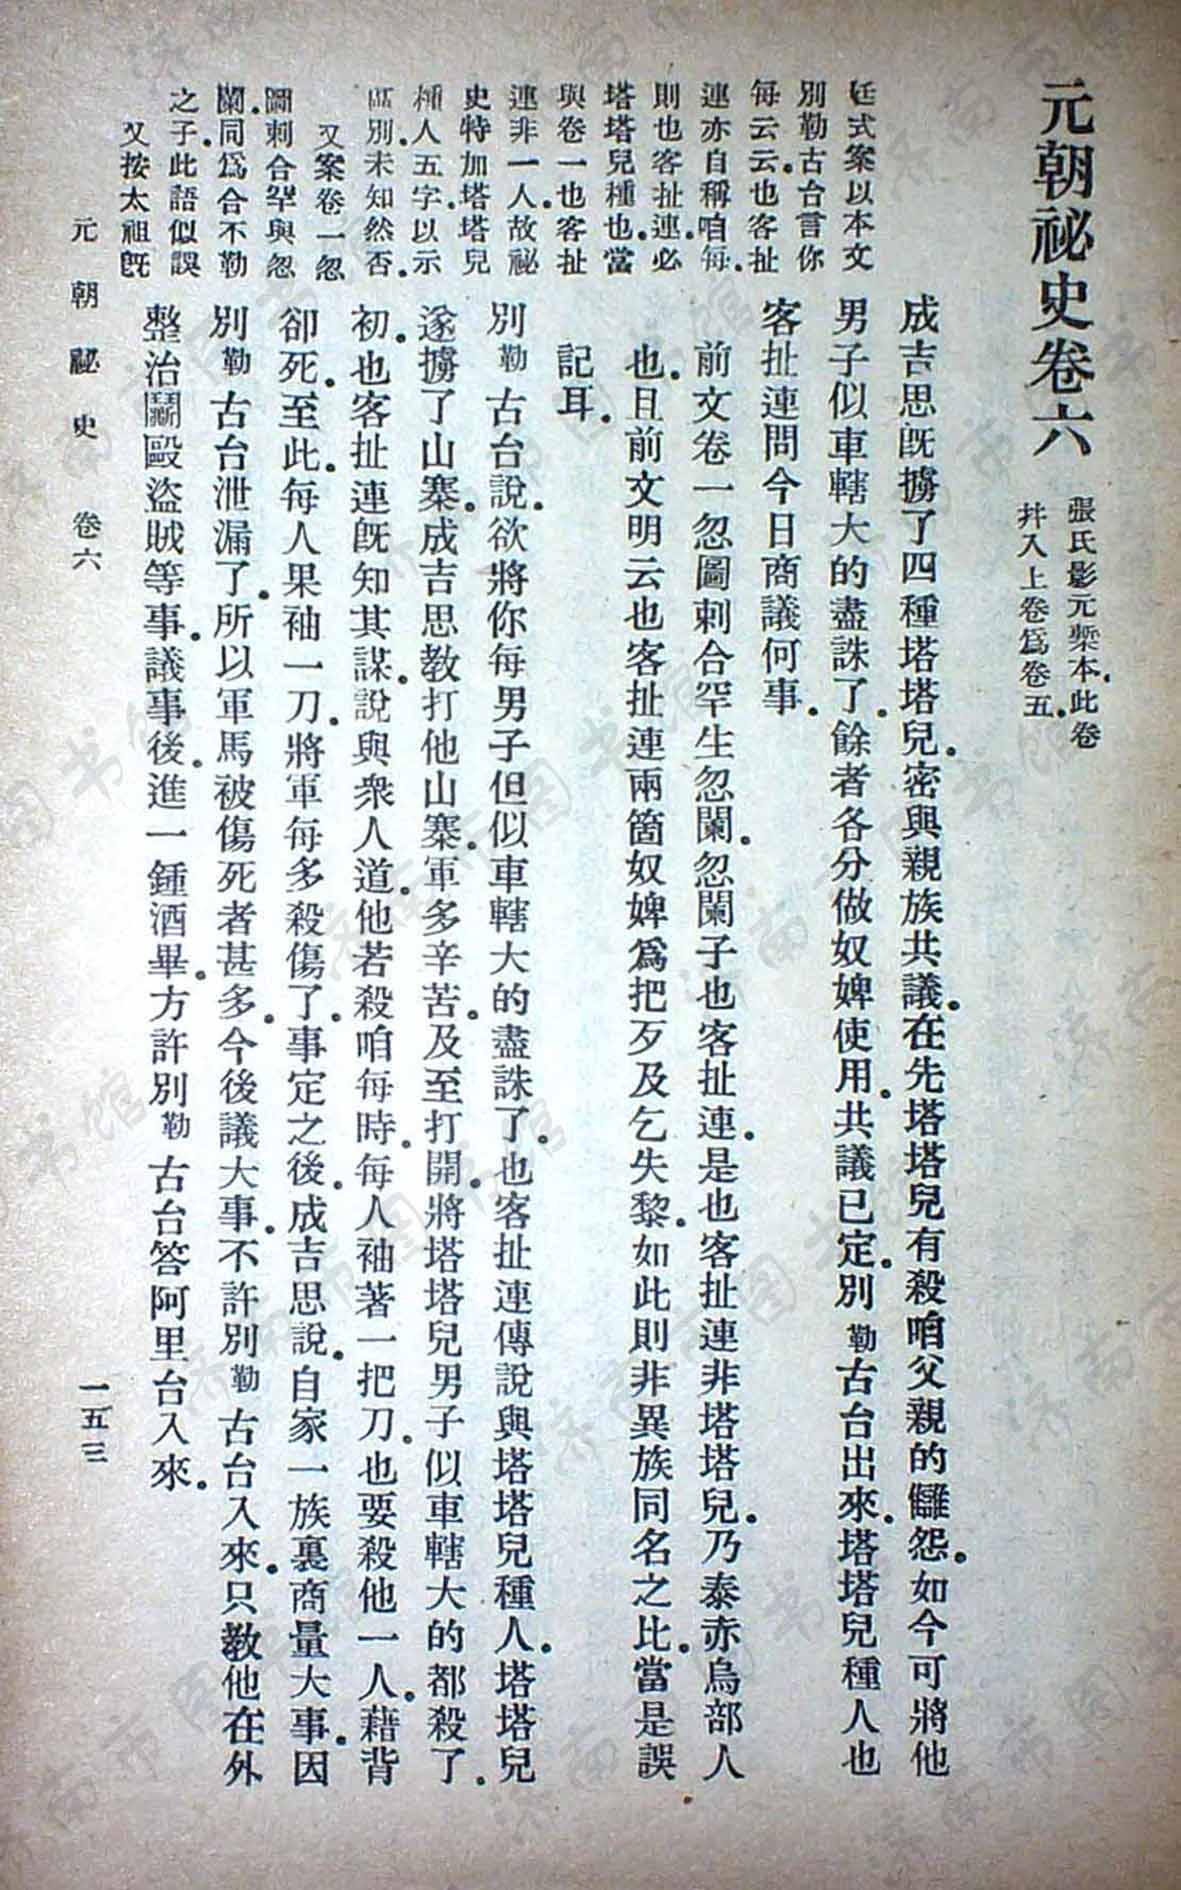 元朝祕史卷六
張氏影元槧本此卷
幷入上卷爲卷五。
成吉思旣擄了四種塔塔兒。密與親族共議。在先塔塔兒有殺咱父親的讎怨。如今可將他
男子似車轄大的盡誅了。餘者各分做奴婢使用。共議已定。別勒古台出來。塔塔兒種人也
客扯連問今日商議何事。
前文卷一忽圖刺合罕生忽闌。忽闌子也客扯連。是也客扯連非塔塔兒。乃泰赤烏部人
也。且前文明云也客扯連兩箇奴婢爲把歹及乞失黎。如此則非異族同名之比。當是誤
記耳。
別勒古台說。欲將你每男子但似車轄大的盡誅了。也客扯連傳說與塔塔兒種人。塔塔兒
遂擄了山寨。成吉思教打他山寨。軍多辛苦。及至打開。將塔塔兒男子似車轄大的都殺了。
初。也客扯連旣知其謀。說與衆人道。他若殺咱每時。每人袖著一把刀。也要殺他一人。藉背
卻死。至此。每人果袖一刀。將軍每多殺傷了。事定之後。成吉思說。自家一族裏商量大事。因
別勒古台泄漏了。所以軍馬被傷死者甚多。今後議大事。不許別勒古台入來。只教他在外
整治鬭毆盜賊等事。議事後。進一鍾酒畢。方許別勒古台答阿里台入來。
廷式案以本文
別勒古台言你
每云云。也客扯
連亦自稱咱每。
則也客扯連。必
塔塔兒種也。當
與卷一也客扯
連非一人。故祕
史特加塔塔兒
種人五字。以示
區別。未知然否。
又案卷一忽
圖刺合罕與忽
闌。同爲合不勒
之子。此語似誤
又按太祖旣
元朝祕史 卷六
一五三